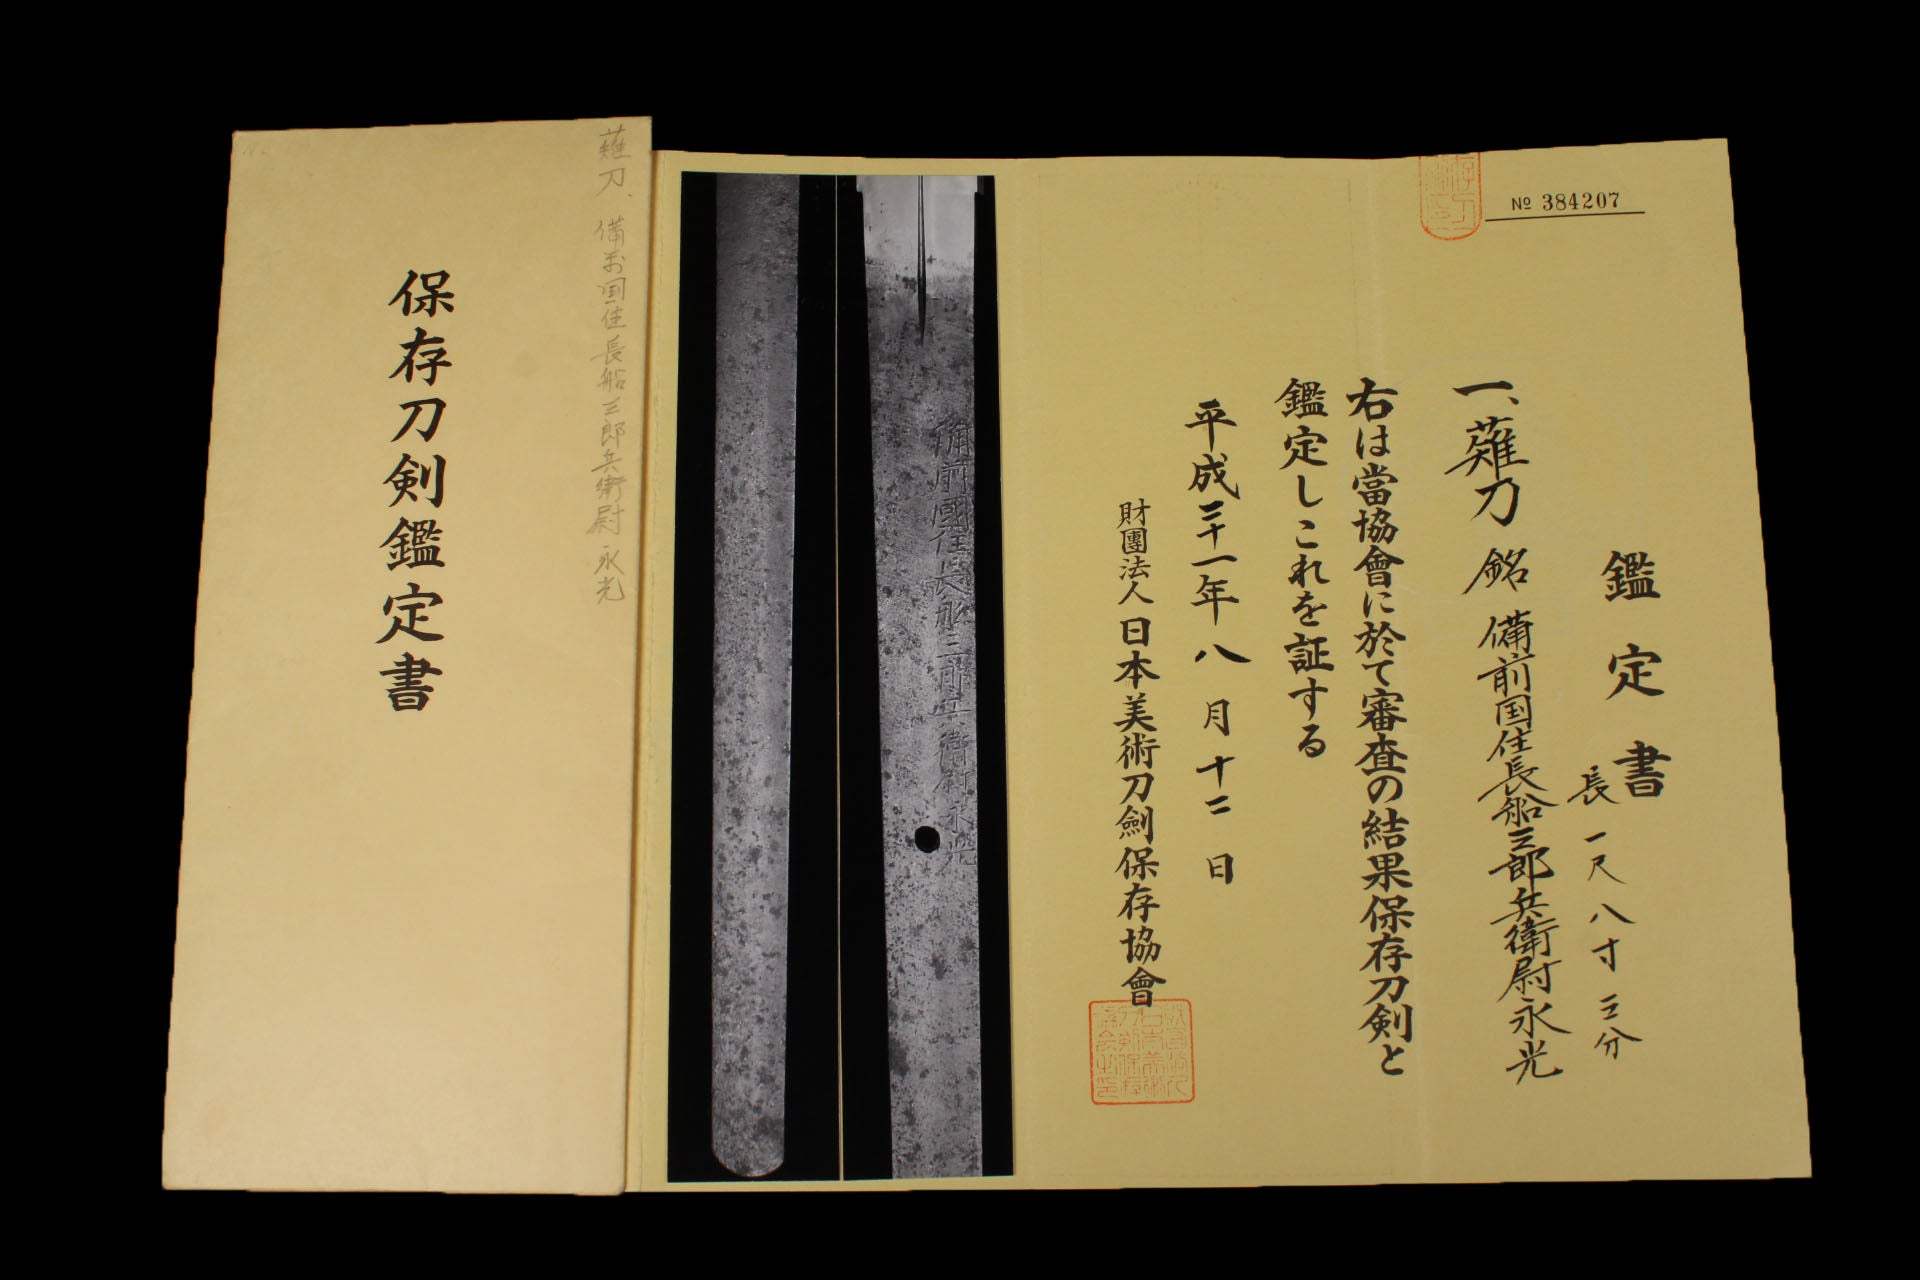 保存刀剣鑑定書
薙刀、備前国住長船三郎兵衛尉永光
備前國住長船三郎兵衛尉永光
№ 384207
鑑定書
長一尺八寸三分
一、薙刀 銘 備前国住長船三郎兵衛尉永光
右は當協會に於て審査の結果保存刀剣と
鑑定しこれを証する
平成二十一年八月十二日
財團法人日本美術刀劍保存協會